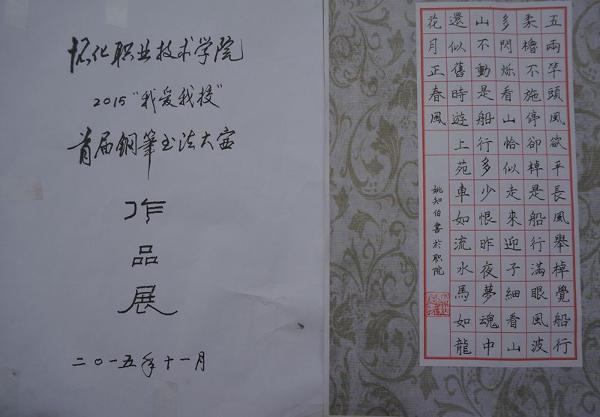 怀化职业技术学院
2015“我爱我校”
首届鋼筆书法大赛
作品展
二〇一五年十一月
五兩竿頭風欲平長風舉棹覺船行
柔櫓不施停卻棹是船行滿眼風波
多閃烁看山恰似走來迎子細看山
山不動是船行多少恨昨夜夢魂中
還似舊時遊上苑車如流水馬如龍
花月正春風
姚知伯書於职院